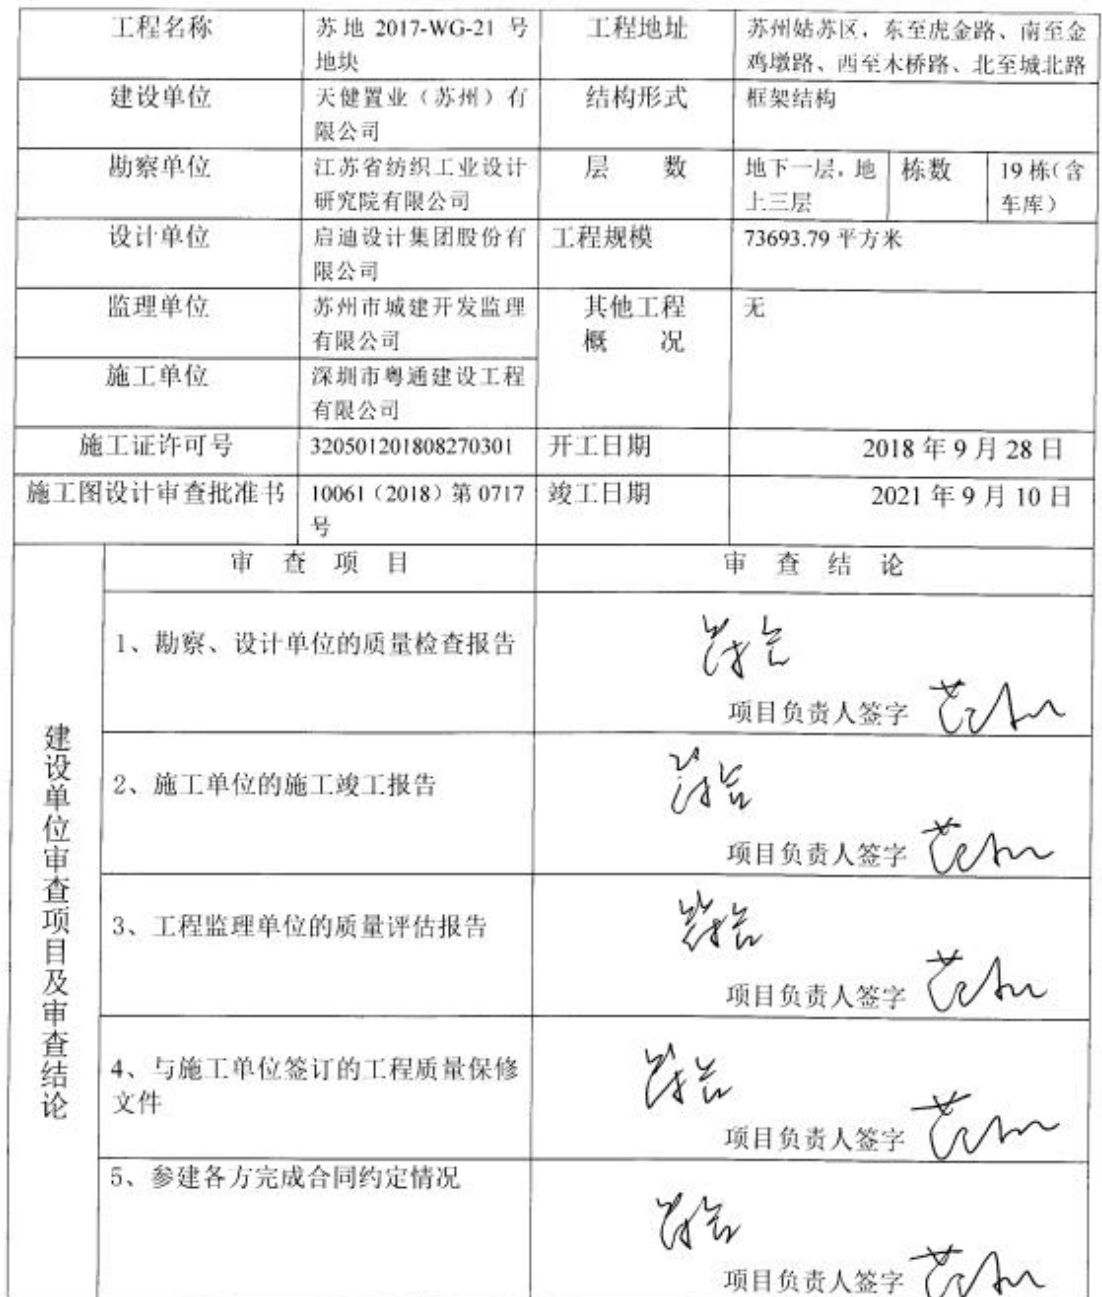 工程名称 苏地 2017-WG-21 号 工程地址 苏州姑苏区，东至虎金路、南至金
地块 鸡墩路、西至木桥路、北至城北路
建设单位 天健置业（苏州）有 结构形式 框架结构
限公司
勘察单位 江苏省纺织工业设计 层 数 地下一层，地 栋数 19 栋（含
研究院有限公司 上三层 车库）
设计单位 启迪设计集团股份有 工程规模 73693.79 平方米
限公司
监理单位 苏州市城建开发监理 其他工程 无
有限公司 概 况
施工单位 深圳市粤通建设工程
有限公司
施工证许可号 320501201808270301 开工日期 2018 年 9 月 28 日
施工图设计审查批准书 10061（2018）第 0717 竣工日期 2021 年 9 月 10 日
号
建设单位审查项目及审查结论
审 查 项 目 审 查 结 论
1、勘察、设计单位的质量检查报告 符合
项目负责人签字
2、施工单位的施工竣工报告 符合
项目负责人签字
3、工程监理单位的质量评估报告 符合
项目负责人签字
4、与施工单位签订的工程质量保修 符合
文件
项目负责人签字
5、参建各方完成合同约定情况 符合
项目负责人签字